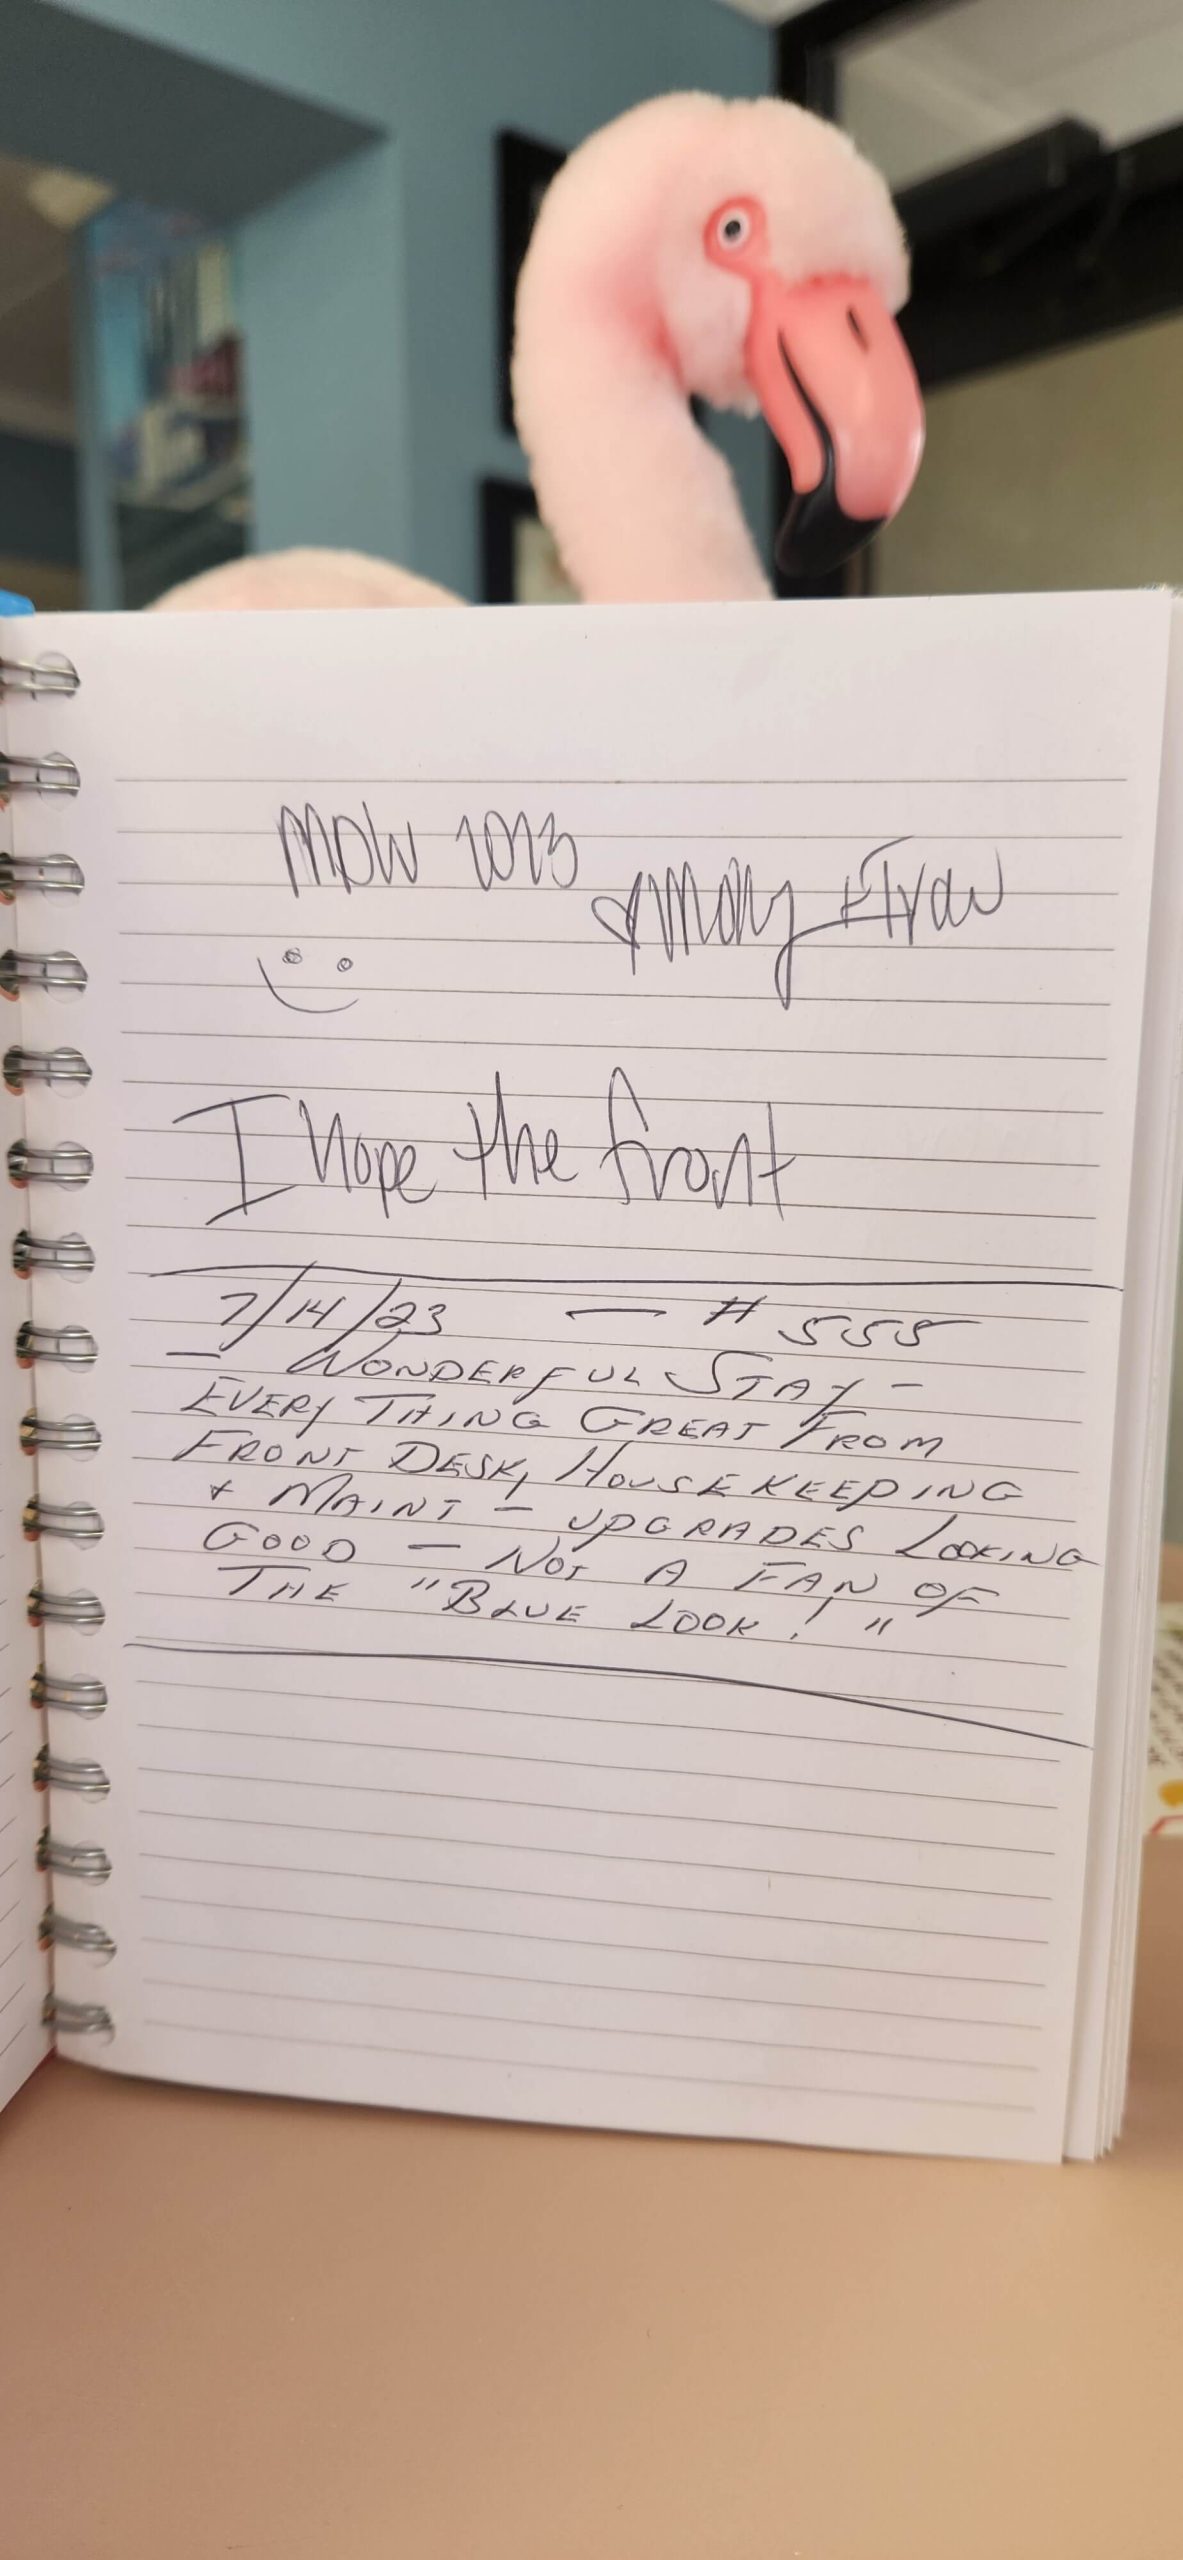 MDW 2023
Molly +
I hope the front
7/14/23 — # 555
— WONDERFUL STAY —
EVERY THING GREAT FROM
FRONT DESK, HOUSEKEEPING
+ MAINT — UPGRADES LOOKING
GOOD — NOT A FAN OF
THE "BLUE LOOK! "